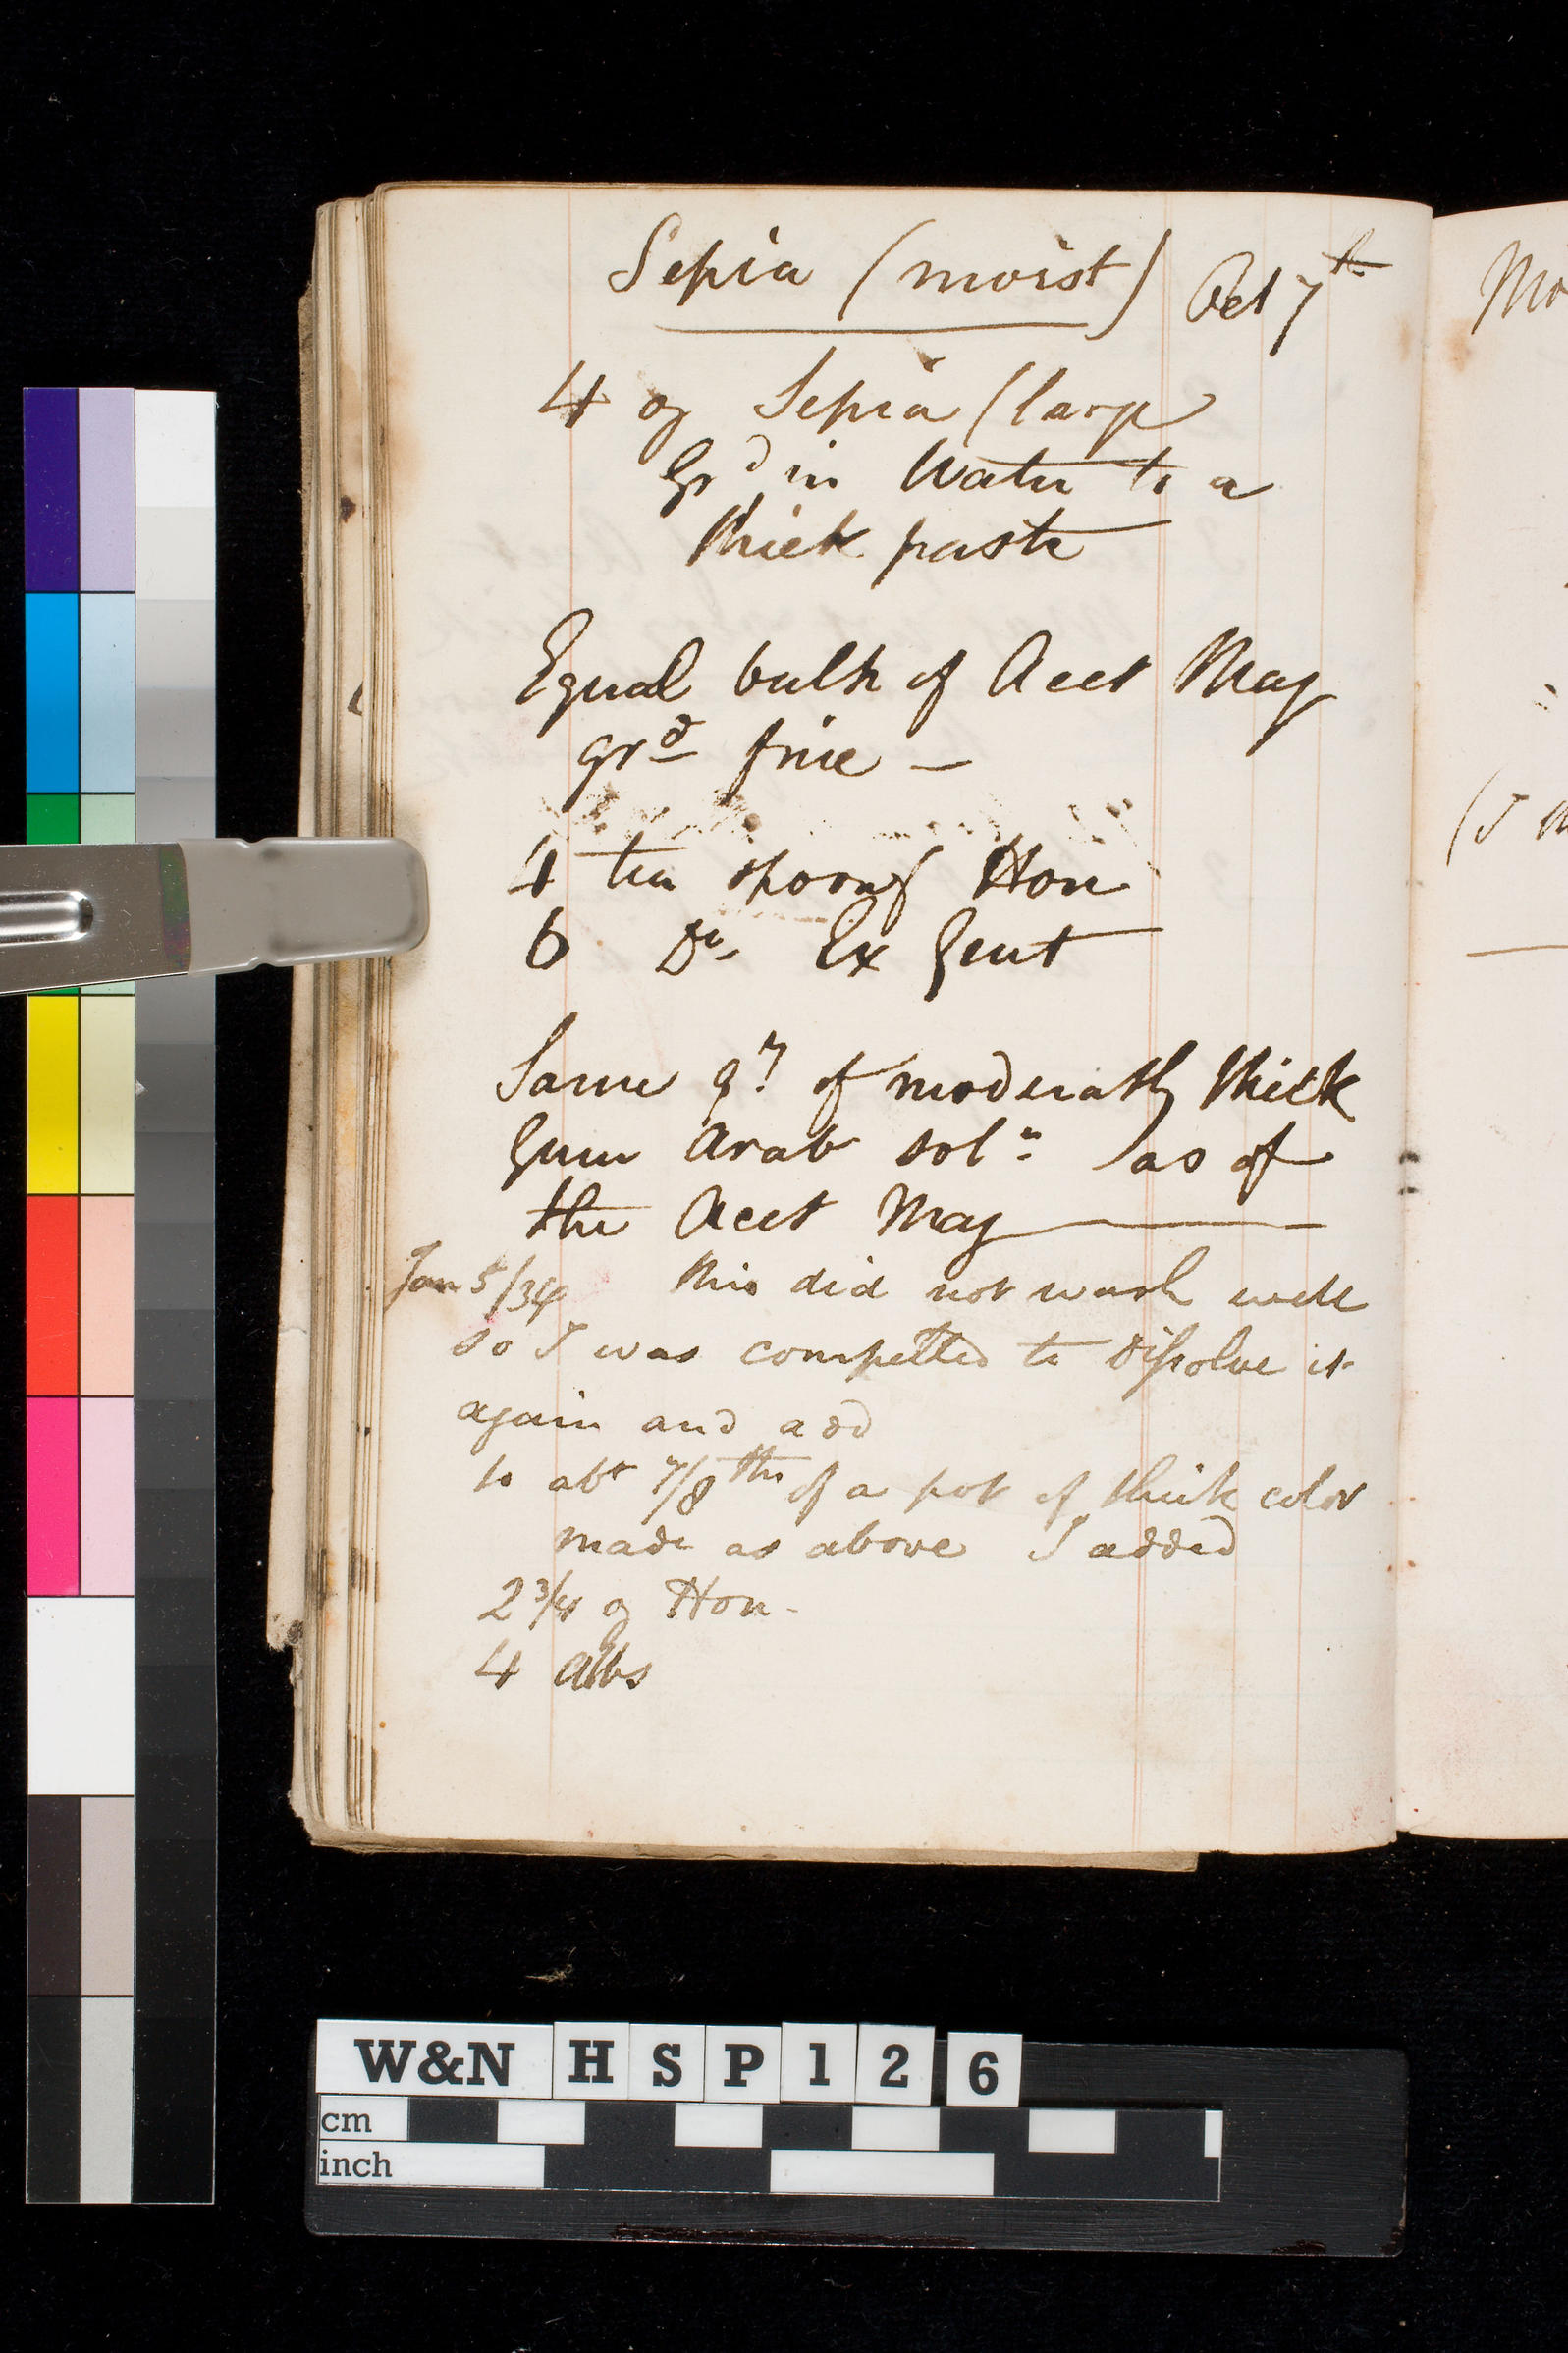 Sepia (moist) Oct 7th
4 oz Sepia (large
Grd in Water to a
thick paste
Equal bulk of Acet Mag
grd fine —
4 tea spoonf Hon
6 Do Ex Gent
Same qy of moderately thick
Gum Arab soln as of
the Acet Mag
Jan 5/34 this did not wash well
so I was compelled to dissolve it
again and add
to abt 7/8ths of a pot of thick color
made as above I added
2 3/4 oz Hon -
4
Mo
(I
W&N H S P 1 2 6
cm
inch